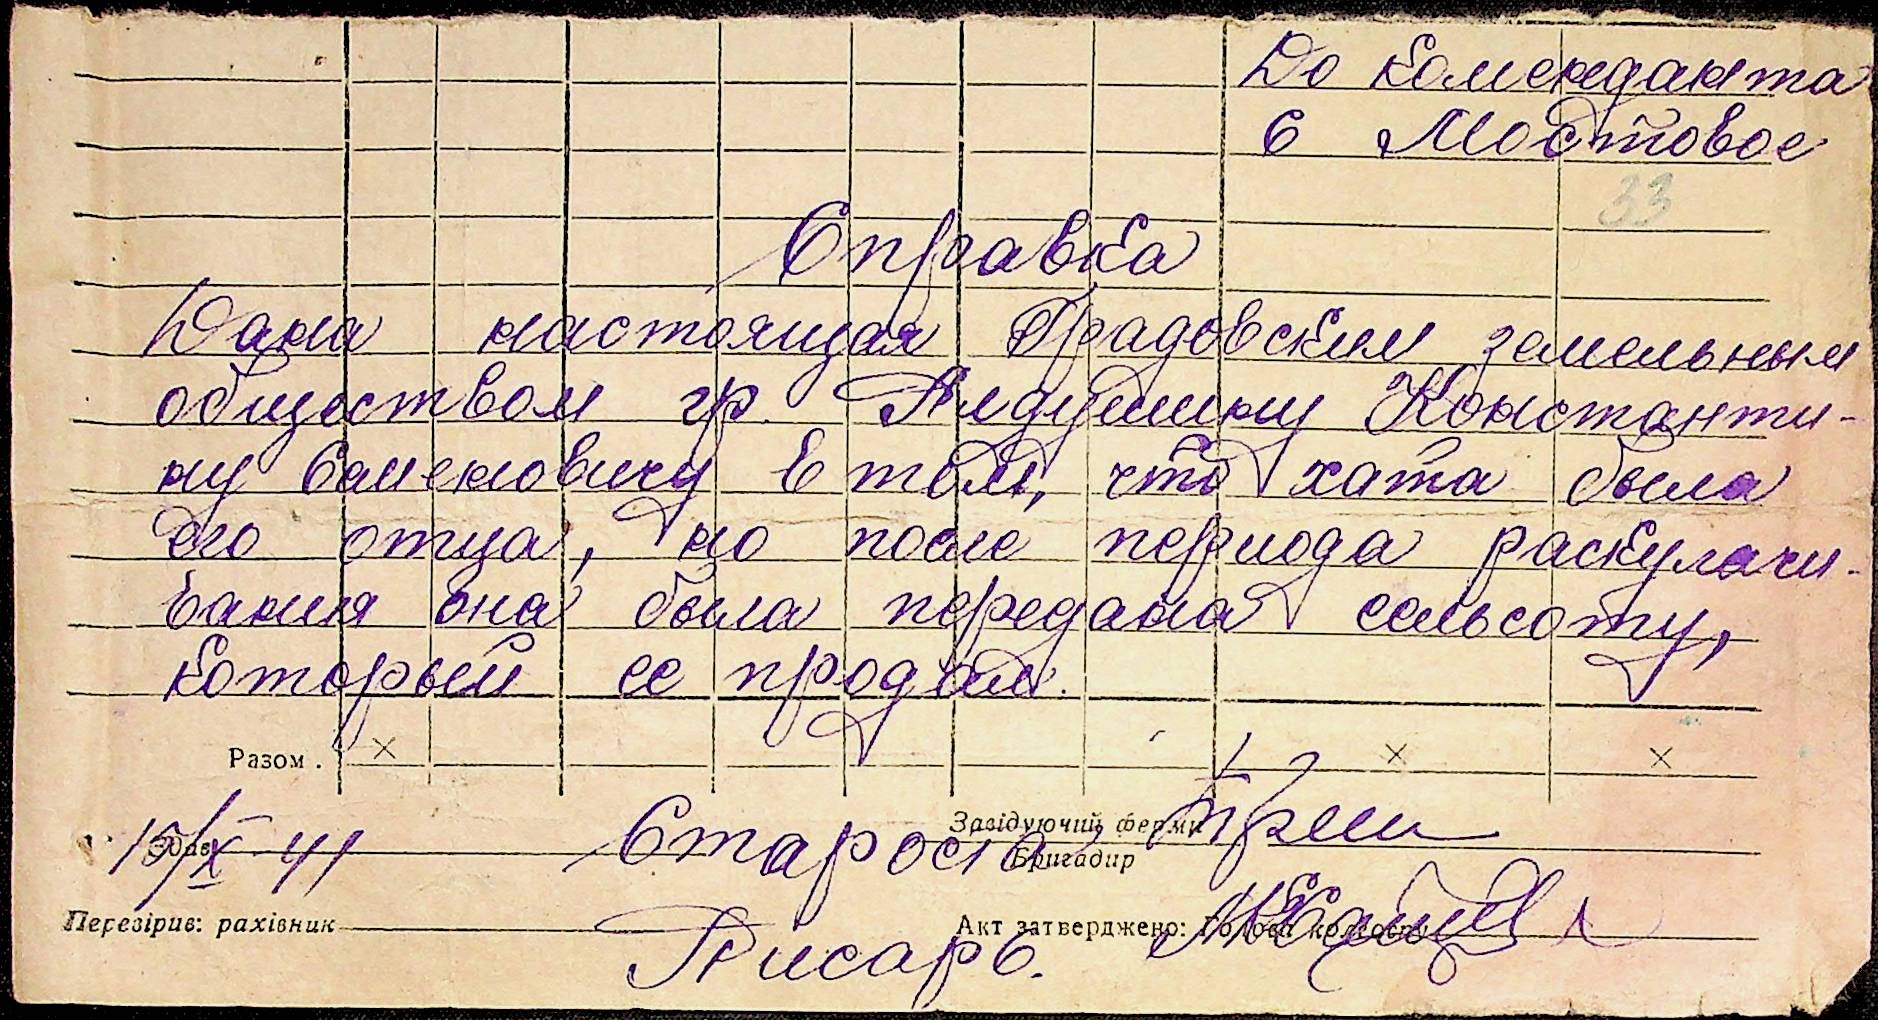 До комендакта
с Мостовое
33
Справка
Дана настоящая Градовским земельным
обществом гр. Алдушину Константи-
ну Семеновичу в том, что хата была
его отца, но после периода раскулачи-
вания она была передана сельсоту,
который ее продал.
Разом .
15/X 41
Здав
Староста
Завідуючий ферми
Бригадир
Перевірив: рахівник
Акт затверджено: Голова колгоспу
Писарь.